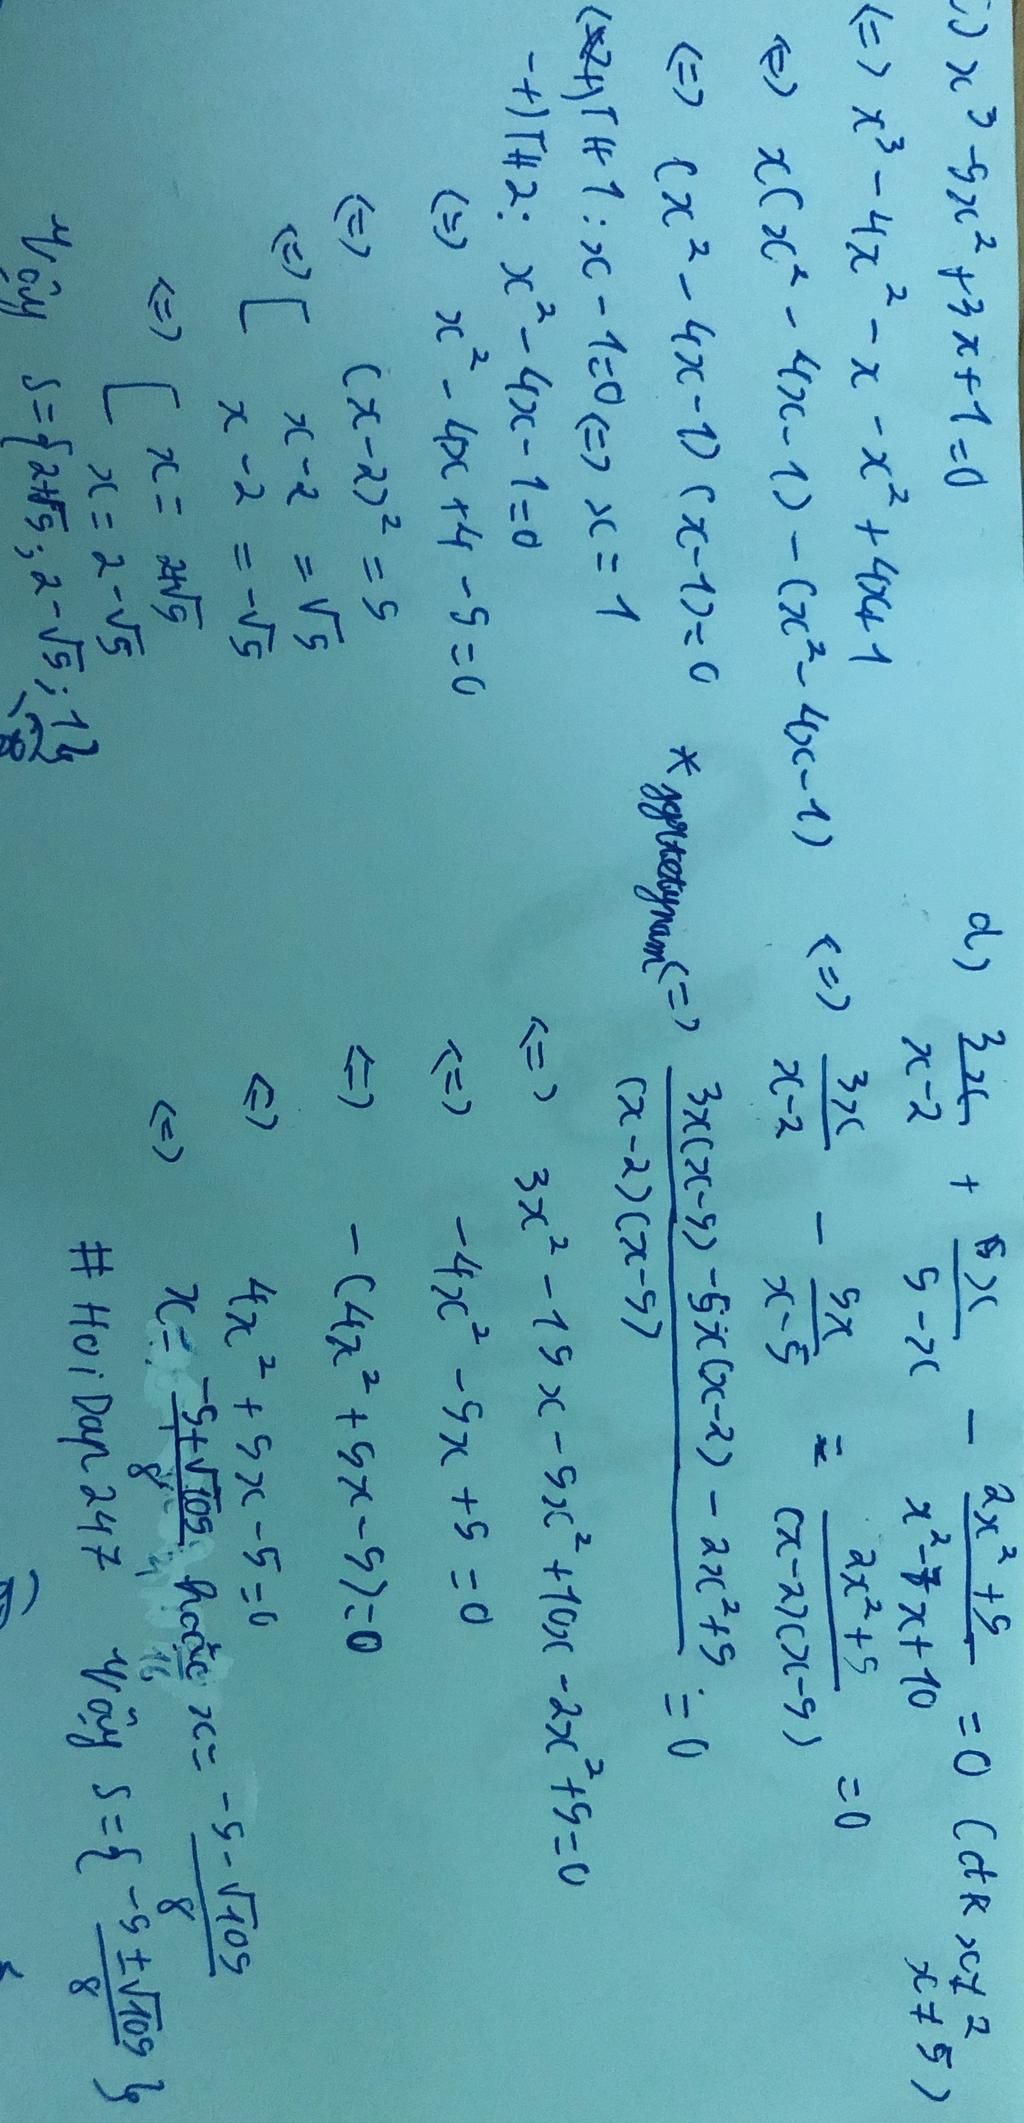 c) x³ - 5x² + 3x + 1 = 0
<=> x³ - 4x² - x - x² + 4x + 1
<=> x(x² - 4x - 1) - (x² - 4x - 1)
<=> (x² - 4x - 1)(x - 1) = 0
+) TH1: x - 1 = 0 <=> x = 1
+) TH2: x² - 4x - 1 = 0
<=> x² - 4x + 4 - 5 = 0
<=> (x - 2)² = 5
<=> [ x - 2 = √5
x - 2 = -√5
<=> [ x = 2+√5
x = 2 - √5
Vậy S = {2+√5; 2 - √5; 1}
d) 3x/(x - 2) + 5x/(5 - x) - (2x² + 5)/(x² - 7x + 10) = 0 (đk x ≠ 2
x ≠ 5)
<=> 3x/(x - 2) - 5x/(x - 5) = (2x² + 5)/((x - 2)(x - 5)) = 0
* <=> (3x(x - 5) - 5x(x - 2) - 2x² + 5)/((x - 2)(x - 5)) = 0
<=> 3x² - 15x - 5x² + 10x - 2x² + 5 = 0
<=> -4x² - 5x + 5 = 0
<=> -(4x² + 5x - 5) = 0
<=> 4x² + 5x - 5 = 0
<=> x = (-5 + √105)/8 hoặc x = (-5 - √105)/8
# HoiDap247 Vậy S = {(-5 ± √105)/8}